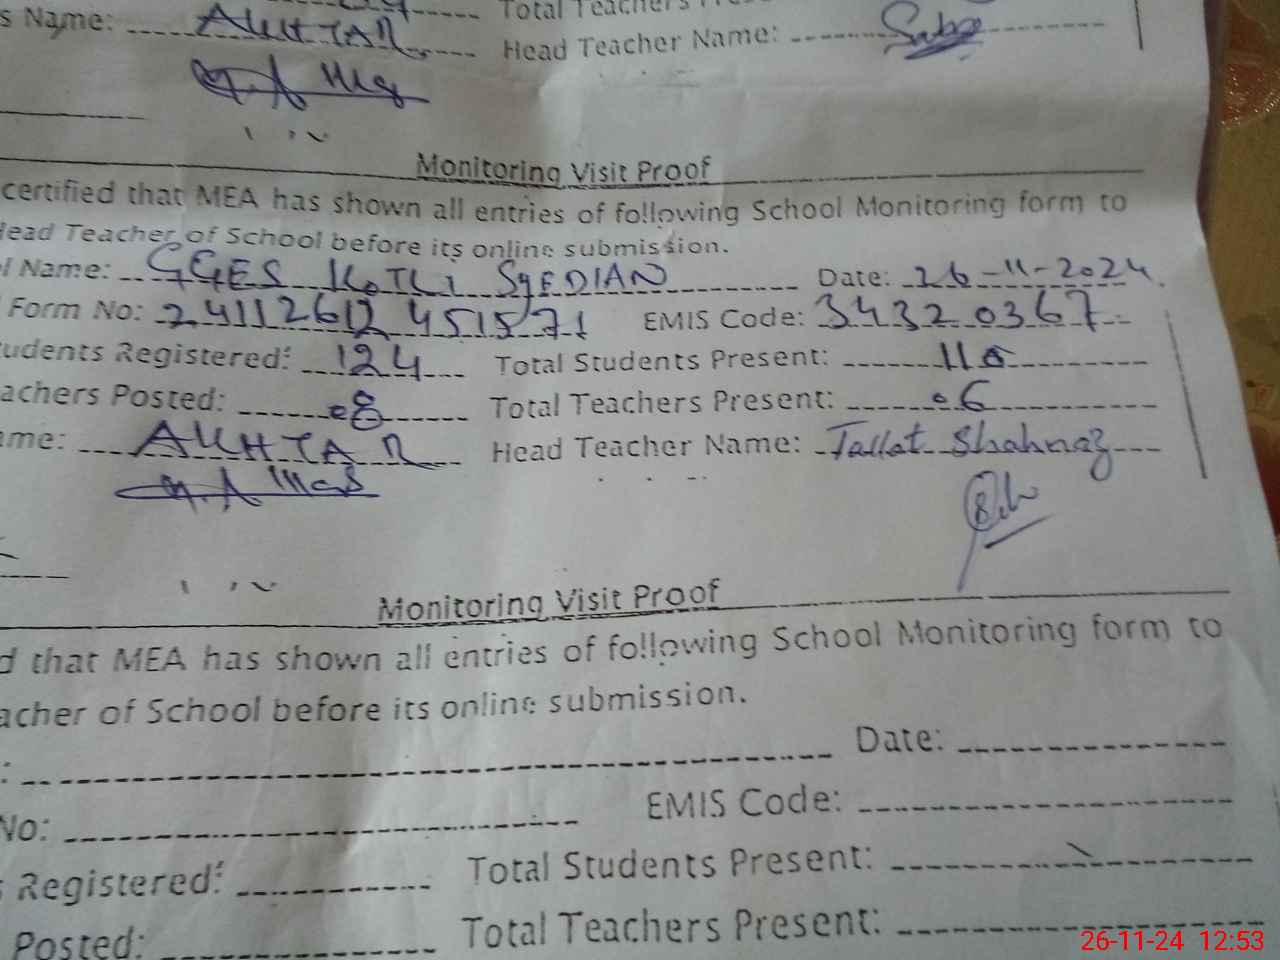 s Name: AKHTAR Total Teachers
Head Teacher Name:
Monitoring Visit Proof
certified that MEA has shown all entries of following School Monitoring form to
Head Teacher of School before its online submission.
l Name: GGES KOTLI SyEDIAN Date: 26-11-2024
Form No: 24112612451571 EMIS Code: 34320367
udents Registered: 124 Total Students Present: 110
achers Posted: 08 Total Teachers Present: 06
ame: AKHTAR Head Teacher Name: Tallat Shahnaz
Monitoring Visit Proof
d that MEA has shown all entries of following School Monitoring form to
acher of School before its online submission.
: Date:
No: EMIS Code:
s Registered: Total Students Present:
Posted: Total Teachers Present:
26-11-24 12:53